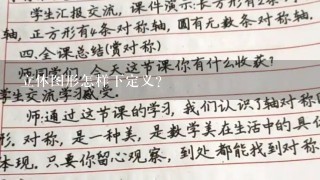 学生汇报交流，课件演示：长方形有2条
轴，正方形有4条对称轴，圆有无数条对称轴.
四.全课总结(赏对称)
今天这节课你有什么收获？
立体图形怎样下定义？
学生交流学习
师：通过这节课的学习，我们认识了轴对称
形.对称，是一种美，是数学美在生活中的具
体现.只要你留心观察，到处都能找到对称